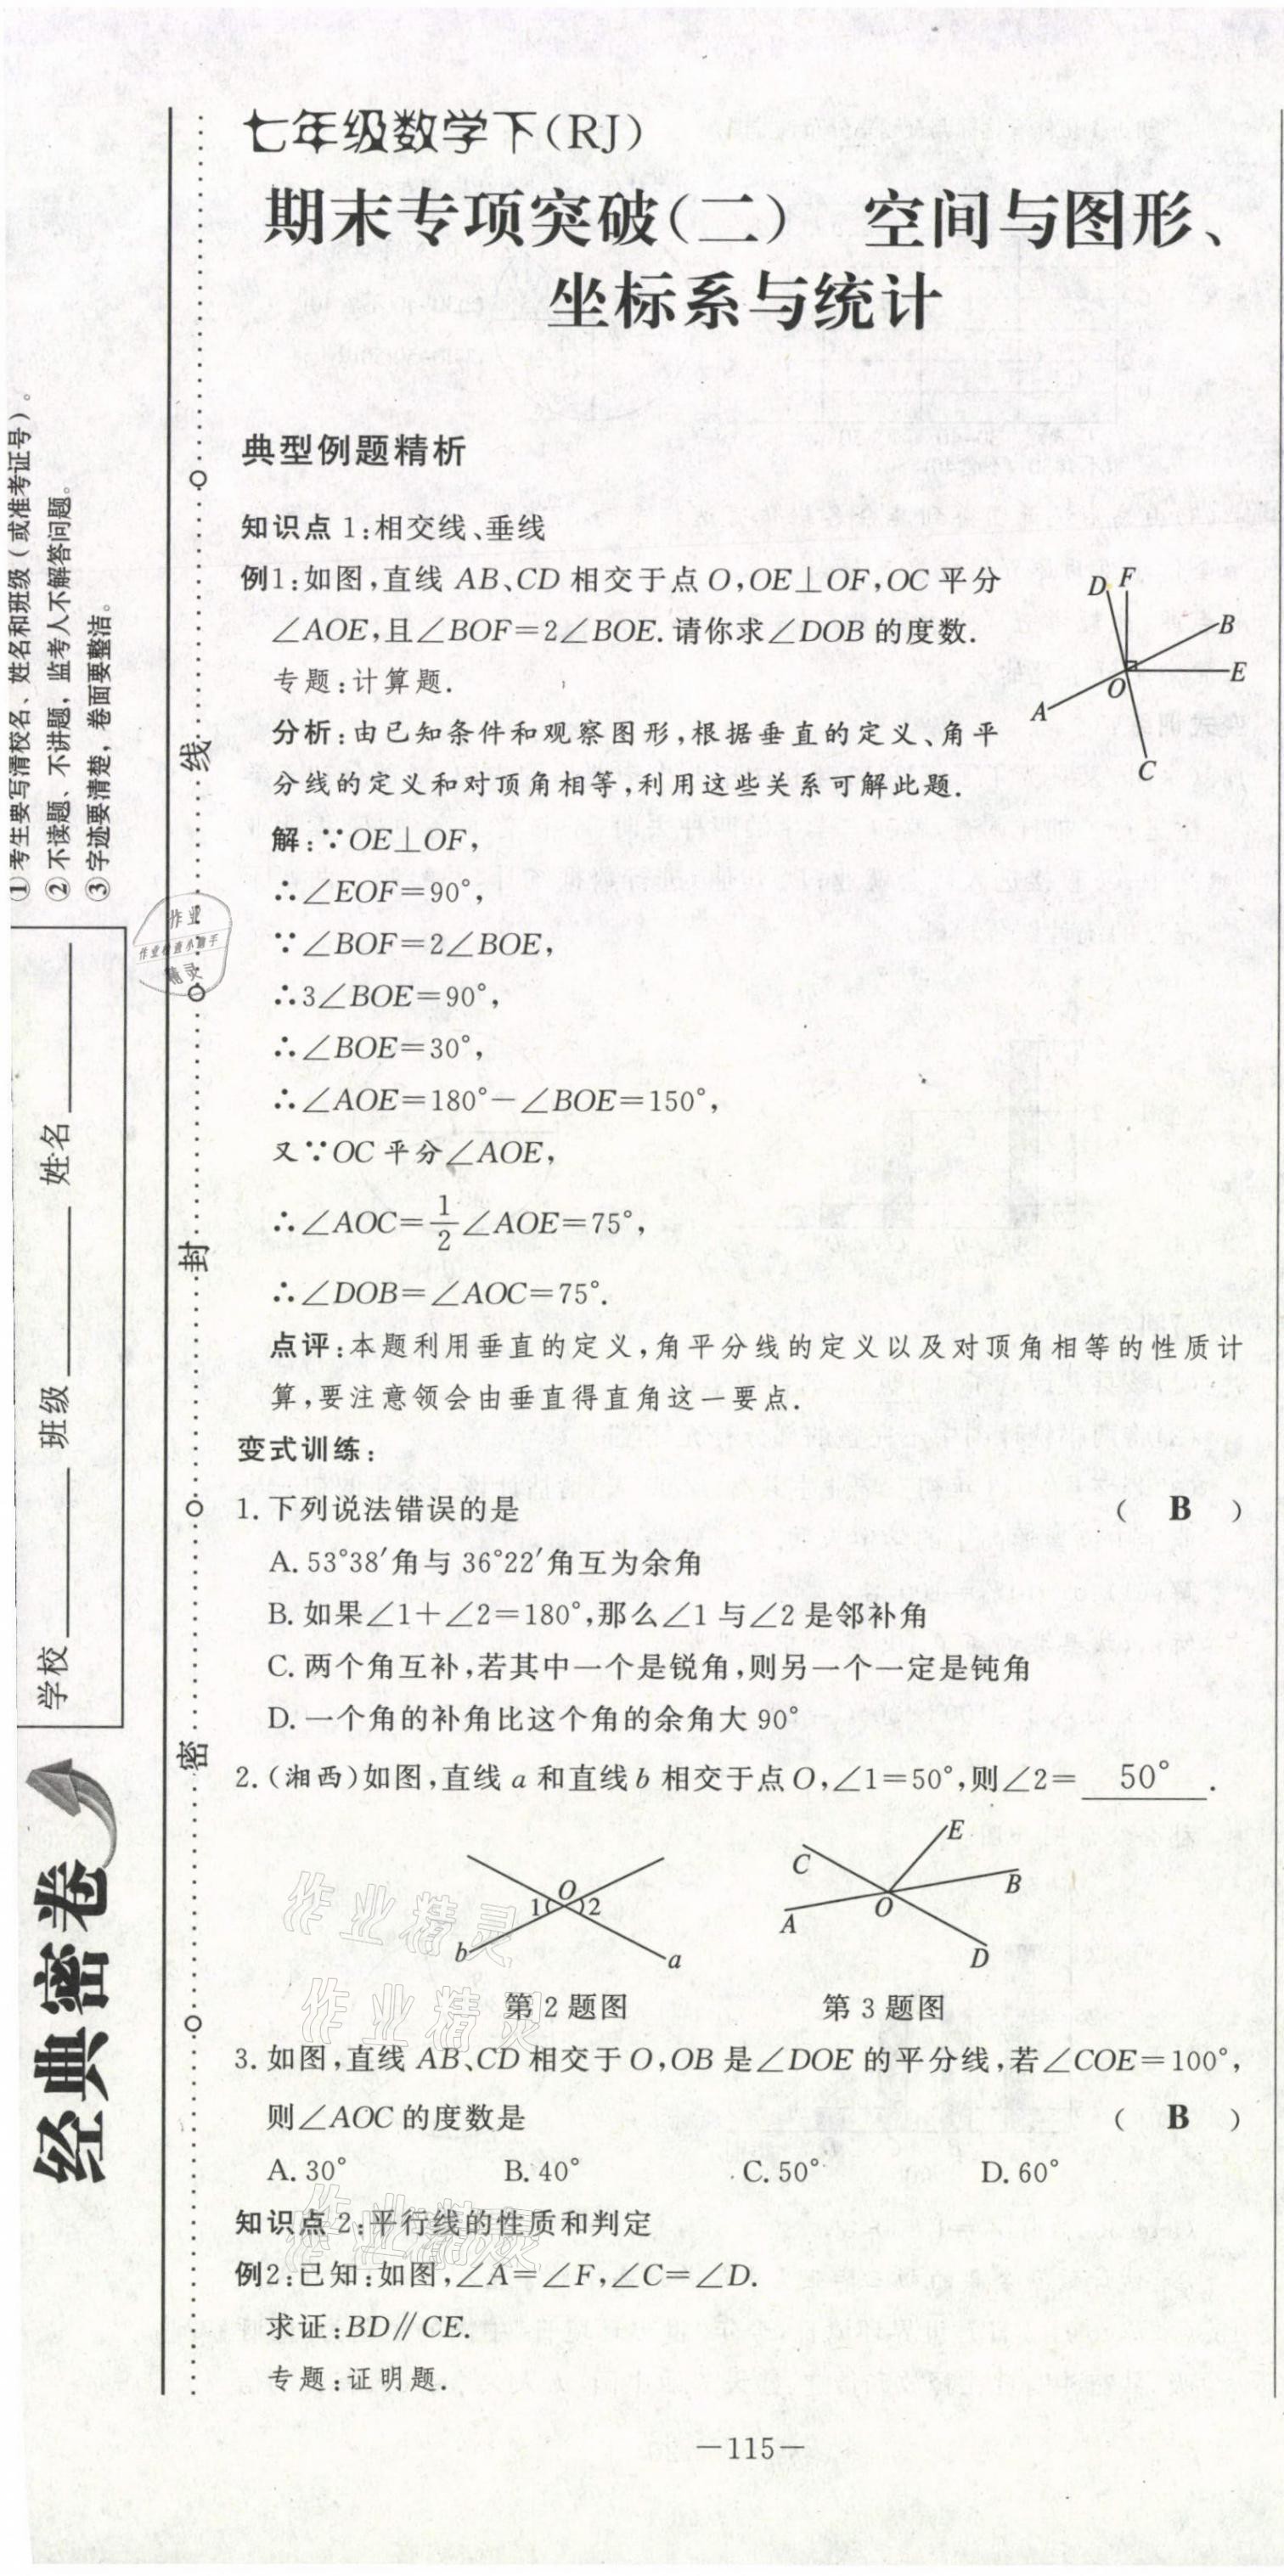 七年级数学下(RJ)
期末专项突破(二) 空间与图形、
坐标系与统计
典型例题精析
知识点 1:相交线、垂线
例1:如图,直线 AB、CD 相交于点 O,OE⊥OF,OC 平分
∠AOE,且∠BOF=2∠BOE.请你求∠DOB 的度数.
专题:计算题.
分析:由已知条件和观察图形,根据垂直的定义、角平
分线的定义和对顶角相等,利用这些关系可解此题.
D F
B
E
O
A
C
解:∵OE⊥OF,
∴∠EOF=90°,
∵∠BOF=2∠BOE,
∴3∠BOE=90°,
∴∠BOE=30°,
∴∠AOE=180°-∠BOE=150°,
又∵OC 平分∠AOE,
∴∠AOC=1/2∠AOE=75°,
∴∠DOB=∠AOC=75°.
点评:本题利用垂直的定义,角平分线的定义以及对顶角相等的性质计
算,要注意领会由垂直得直角这一要点.
变式训练:
1. 下列说法错误的是 ( B )
A. 53°38′角与 36°22′角互为余角
B. 如果∠1+∠2=180°,那么∠1 与∠2 是邻补角
C. 两个角互补,若其中一个是锐角,则另一个一定是钝角
D. 一个角的补角比这个角的余角大 90°
2. (湘西)如图,直线 a 和直线 b 相交于点 O,∠1=50°,则∠2= 50° .
O
1 2
b a
第 2 题图
E
C
B
O
A
D
第 3 题图
3. 如图,直线 AB、CD 相交于 O,OB 是∠DOE 的平分线,若∠COE=100°,
则∠AOC 的度数是 ( B )
A. 30° B. 40° C. 50° D. 60°
知识点 2:平行线的性质和判定
例2:已知:如图,∠A=∠F,∠C=∠D.
求证:BD∥CE.
专题:证明题.
—115—
①考生要写清校名、姓名和班级(或准考证号)。
②不读题、不讲题,监考人不解答问题。
③字迹要清楚,卷面要整洁。
学校 班级 姓名
密 封 线
经典密卷
作业
作业检查小助手
精灵
作业精灵
作业精灵
作业精灵